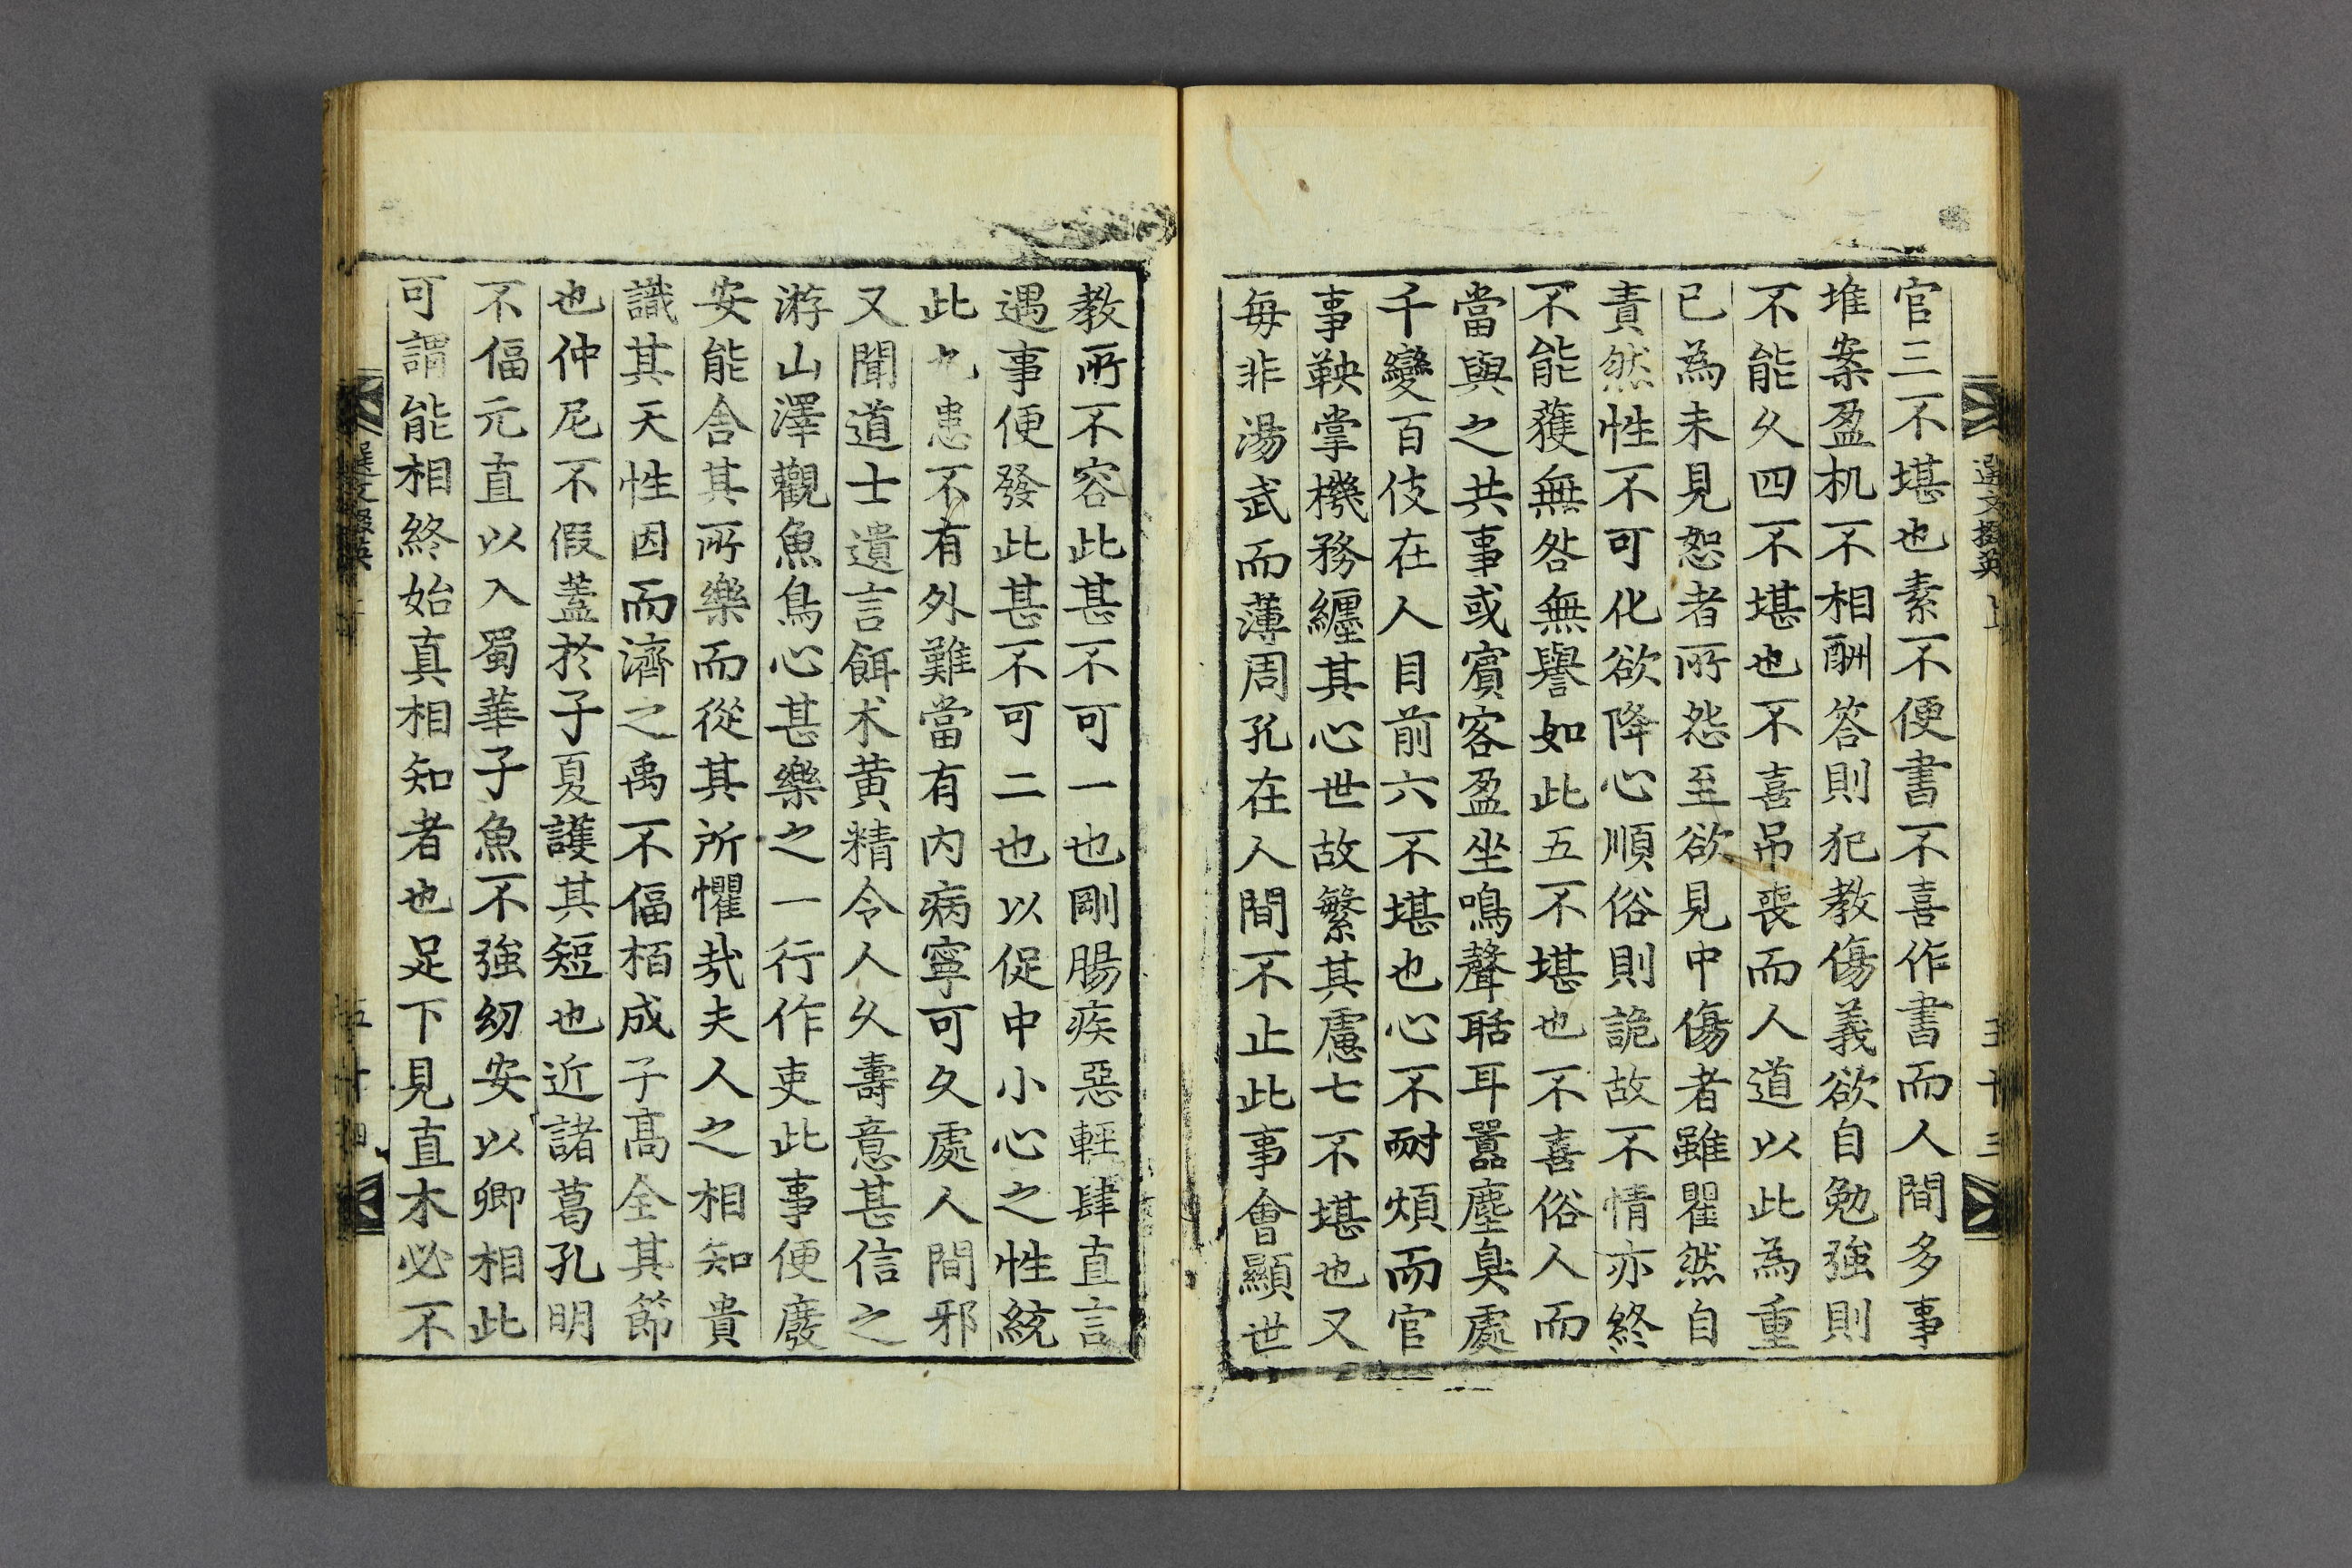 選文掇英 上 五十三
官三不堪也素不便書不喜作書而人間多事
堆案盈机不相酬答則犯教傷義欲自勉強則
不能久四不堪也不喜吊喪而人道以此為重
已為未見恕者所怨至欲見中傷者雖瞿然自
責然性不可化欲降心順俗則詭故不情亦終
不能獲無咎無譽如此五不堪也不喜俗人而
當與之共事或賓客盈坐鳴聲聒耳囂塵臭處
千變百伎在人目前六不堪也心不耐煩而官
事鞅掌機務纏其心世故繁其慮七不堪也又
每非湯武而薄周孔在人間不止此事會顯世
教所不容此甚不可一也剛腸疾惡輕肆直言
遇事便發此甚不可二也以促中小心之性統
此九患不有外難當有内病寧可久處人間邪
又聞道士遺言餌术黄精令人久壽意甚信之
游山澤觀魚鳥心甚樂之一行作吏此事便廢
安能舍其所樂而從其所懼哉夫人之相知貴
識其天性因而濟之禹不偪栢成子高全其節
也仲尼不假蓋於子夏護其短也近諸葛孔明
不偪元直以入蜀華子魚不強幼安以卿相此
可謂能相終始真相知者也足下見直木必不
選文掇英 五十四